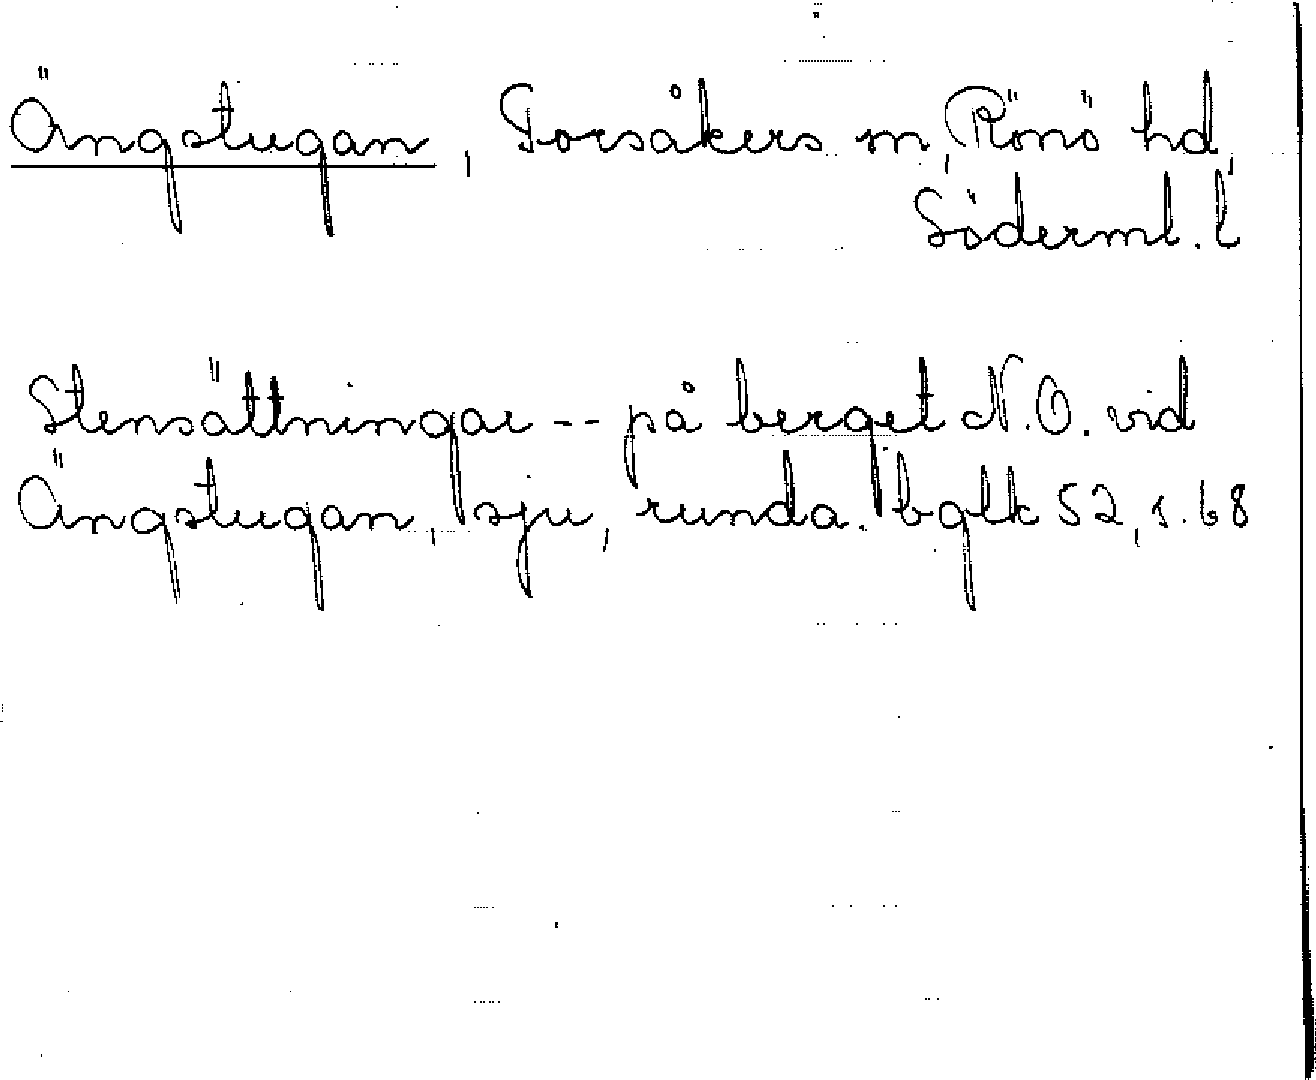 Ängstugan, Torsåkers sn, Rönö hd,
Söderml. l
Stensättningar -- på berget N.O. vid
Ängstugan, sju, runda. bglk 52, s. 68